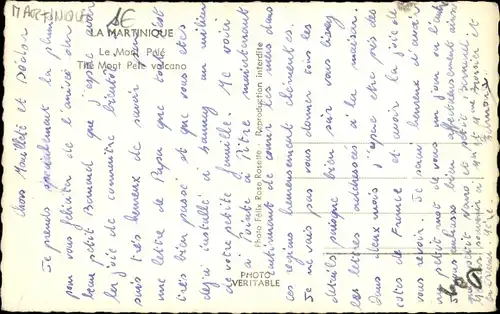 MARTINIQUE
LA MARTINIQUE
Le Mont Pelé
The Mont Pele volcano
Photo Félix Rose Rosette - Reproduction interdite
PHOTO
VERITABLE
Chers Maïllete et Doctor
Je prends spécialement la plume
pour vous féliciter de l'arrivée du
beau petit Bommel que j'espère avoir
la joie de connaître bientôt. Je
suis très heureux de savoir par
une lettre de Papa que tout s'est
très bien passé et que vous êtes
déjà installé à Lannoy au milieu
de votre petite famille. Me voici
à Pointe à Pitre maintenant
de courir les mers dans
ces régions heureusement clémentes
Je ne vais pas vous donner tous les
détails puisque bien sûr vous lisez
les lettres adressées à la maison.
Dans deux mois j'espère être près des
côtes de France et avoir la joie de
vous revoir. Je serai heureux d'avoir
un petit mot de vous
vous embrasse bien affectueusement ainsi
que